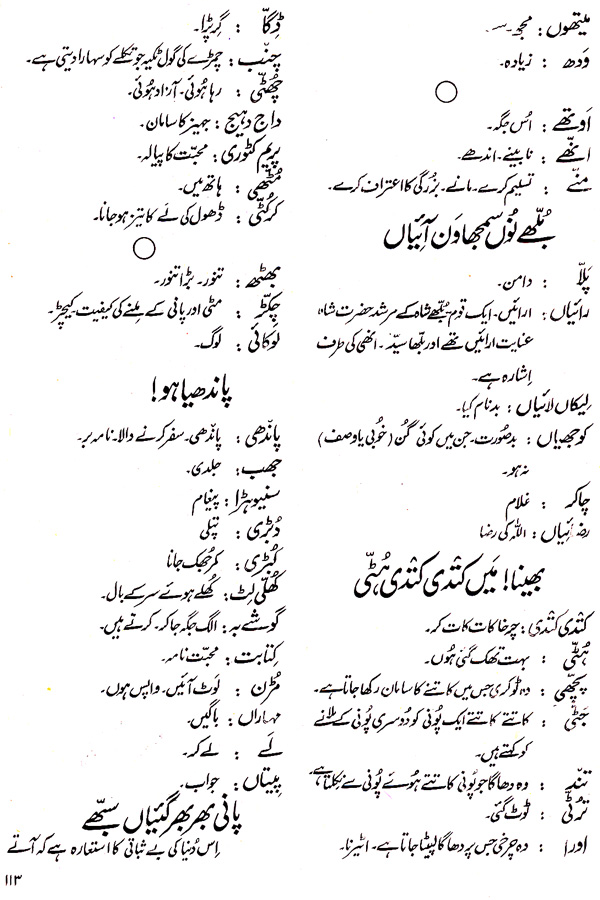 میتھوں : مجھ سے۔
وَدھ : زیادہ۔
اَوتھے : اُس جگہ۔
انھّے : نابینے۔ اندھے۔
مَنّے : تسلیم کرے۔ مانے۔ بزُرگی کا اعتراف کرے۔
بُلّھے نُوں سمجھاون آئیاں
پَلّا : دامن۔
رائیاں : ارائیں۔ ایک قوم۔ بُلّھے شاہ کے مرشد حضرت شاہ
عنایت ارائیں تھے اور بلّھا سیّد۔ انھی کی طرف
اِشارہ ہے۔
لِیکاں لائیاں : بدنام کیا۔
کوجھیاں : بدصُورت۔ جن میں کوئی گُن (خُوبی یا وصف)
نہ ہو۔
چاکر : غلام
رضائیاں : اللہ کی رضا
بھینا! مَیں کتدی کتدی ہُٹّی
کتدی کتدی : چرخا کات کات کر۔
ہُٹّی : بہت تھک گئی ہُوں۔
پچھّی : وہ ٹوکری جس میں کاتنے کا سامان رکھا جاتا ہے۔
جَٹّی : کاتتے کاتتے ایک پُونی کو دُوسری پُونی کے ملانے
کو کہتے ہیں۔
تند : وہ دھاگا جو پُونی کاتتے ہُوئے پُونی سے نِکلتا ہے۔
ترُٹی : ٹوٹ گئی۔
اورا : وہ چرخی جس پر دھاگا لپیٹا جاتا ہے۔ اٹیرنا۔
ڈِگّا : گِر پڑا۔
چنّب : چمڑے کی گول ٹکیہ جو تکلے کو سہارا دیتی ہے۔
چھُٹّی : رہا ہُوئی۔ آزاد ہُوئی۔
داج دہیج : جہیز کا سامان۔
پریم کٹوری : محبّت کا پیالہ۔
مُٹھّی : ہاتھ میں۔
کرُکٹی : ڈھول کی لَے کا تیز ہو جانا۔
بھٹھ : تنور۔ بڑا تنور۔
چکّڑ : مٹی اور پانی کے مِلنے کی کیفیت۔ کیچڑ۔
لوکائی : لوگ۔
پاندھیا ہو!
پاندھی : پاندھی۔ سفر کرنے والا۔ نامہ بر۔
جھب : جلدی۔
سنیوہڑا : پیغام
دُبڑی : پتلی
کُبڑی : کمر جُھک جانا
کُھلی لِٹ : کُھلے ہوئے سر کے بال۔
گوشے بہ : الگ جگہ جا کر۔ کرتے ہیں۔
کِتابت : محبّت نامہ۔
مُڑن : لَوٹ آئیں۔ واپس ہوں۔
مہاراں : باگیں۔
لَے : لے کر۔
پیتاں : جواب۔
پانی بھر بھر گئیاں سبّھے
اِس دُنیا کی بے ثباتی کا استعارہ ہے کہ آتے
۱۱۳